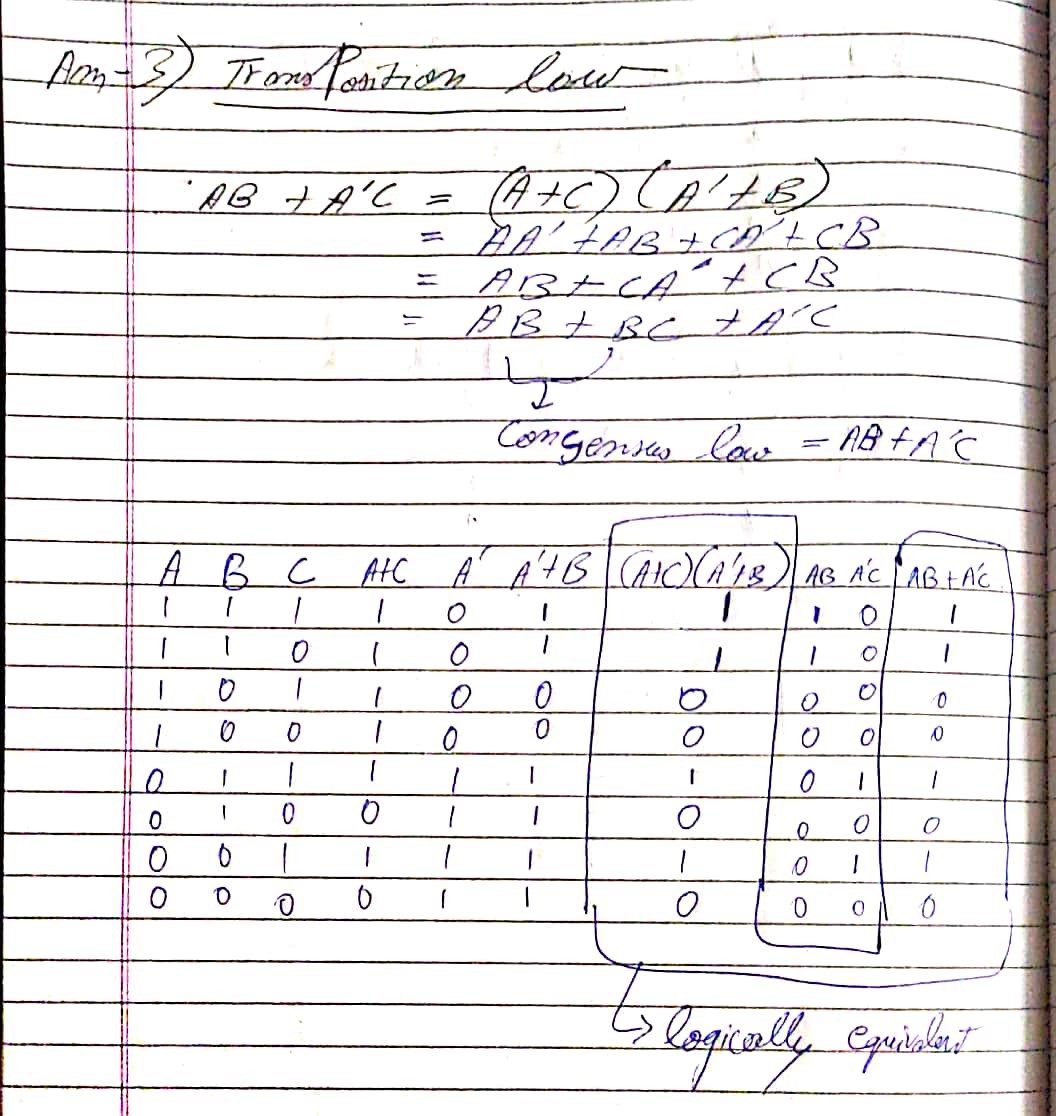 Ans-3) Transposition law
AB + A'C = (A+C) (A'+B)
= AA' + AB + CA' + CB
= AB + CA' + CB
= AB + BC + A'C
Consensus law = AB + A'C
A B C A+C A' A'+B (A+C)(A'+B) AB A'C AB+A'C
1 1 1 1 0 1 1 1 0 1
1 1 0 1 0 1 1 1 0 1
1 0 1 1 0 0 0 0 0 0
1 0 0 1 0 0 0 0 0 0
0 1 1 1 1 1 1 0 1 1
0 1 0 0 1 1 0 0 0 0
0 0 1 1 1 1 1 0 1 1
0 0 0 0 1 1 0 0 0 0
logically equivalent